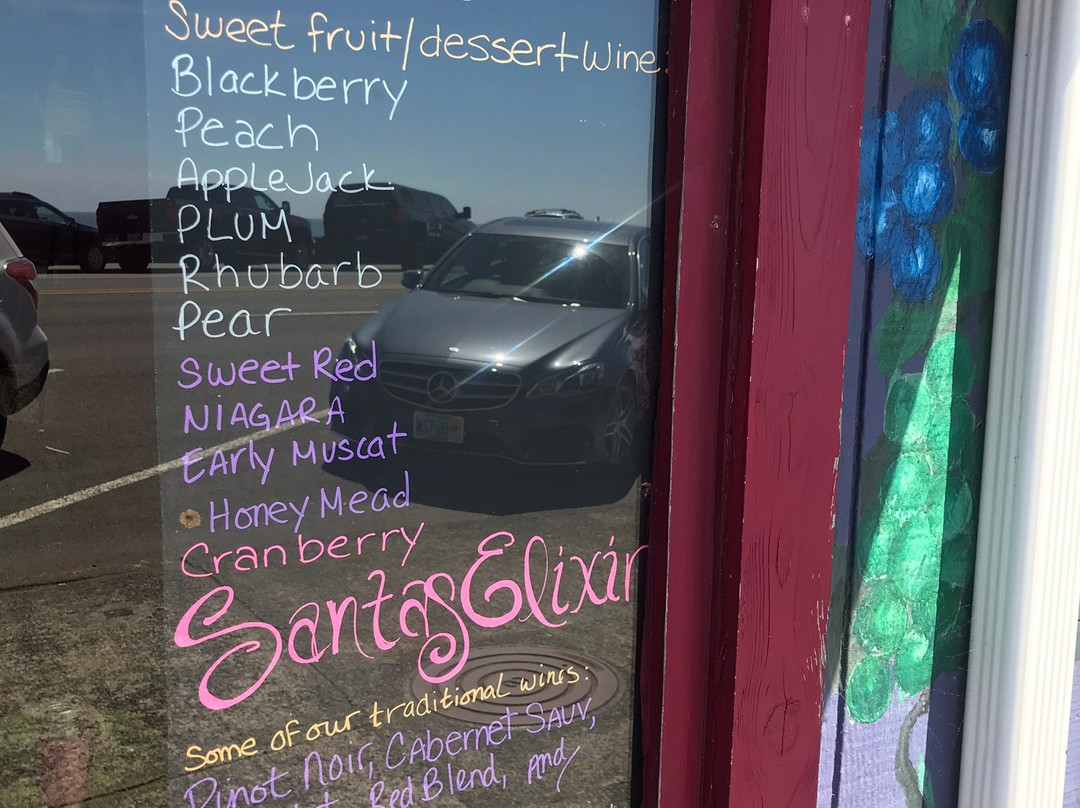 Sweet fruit/dessert wine:
Blackberry
Peach
AppleJack
PLUM
Rhubarb
Pear
Sweet Red
NIAGARA
EArly Muscat
Honey Mead
Cranberry
Santas Elixir
Some of our traditional wines:
Pinot Noir, CAbernet SAuv,
Red Blend, And